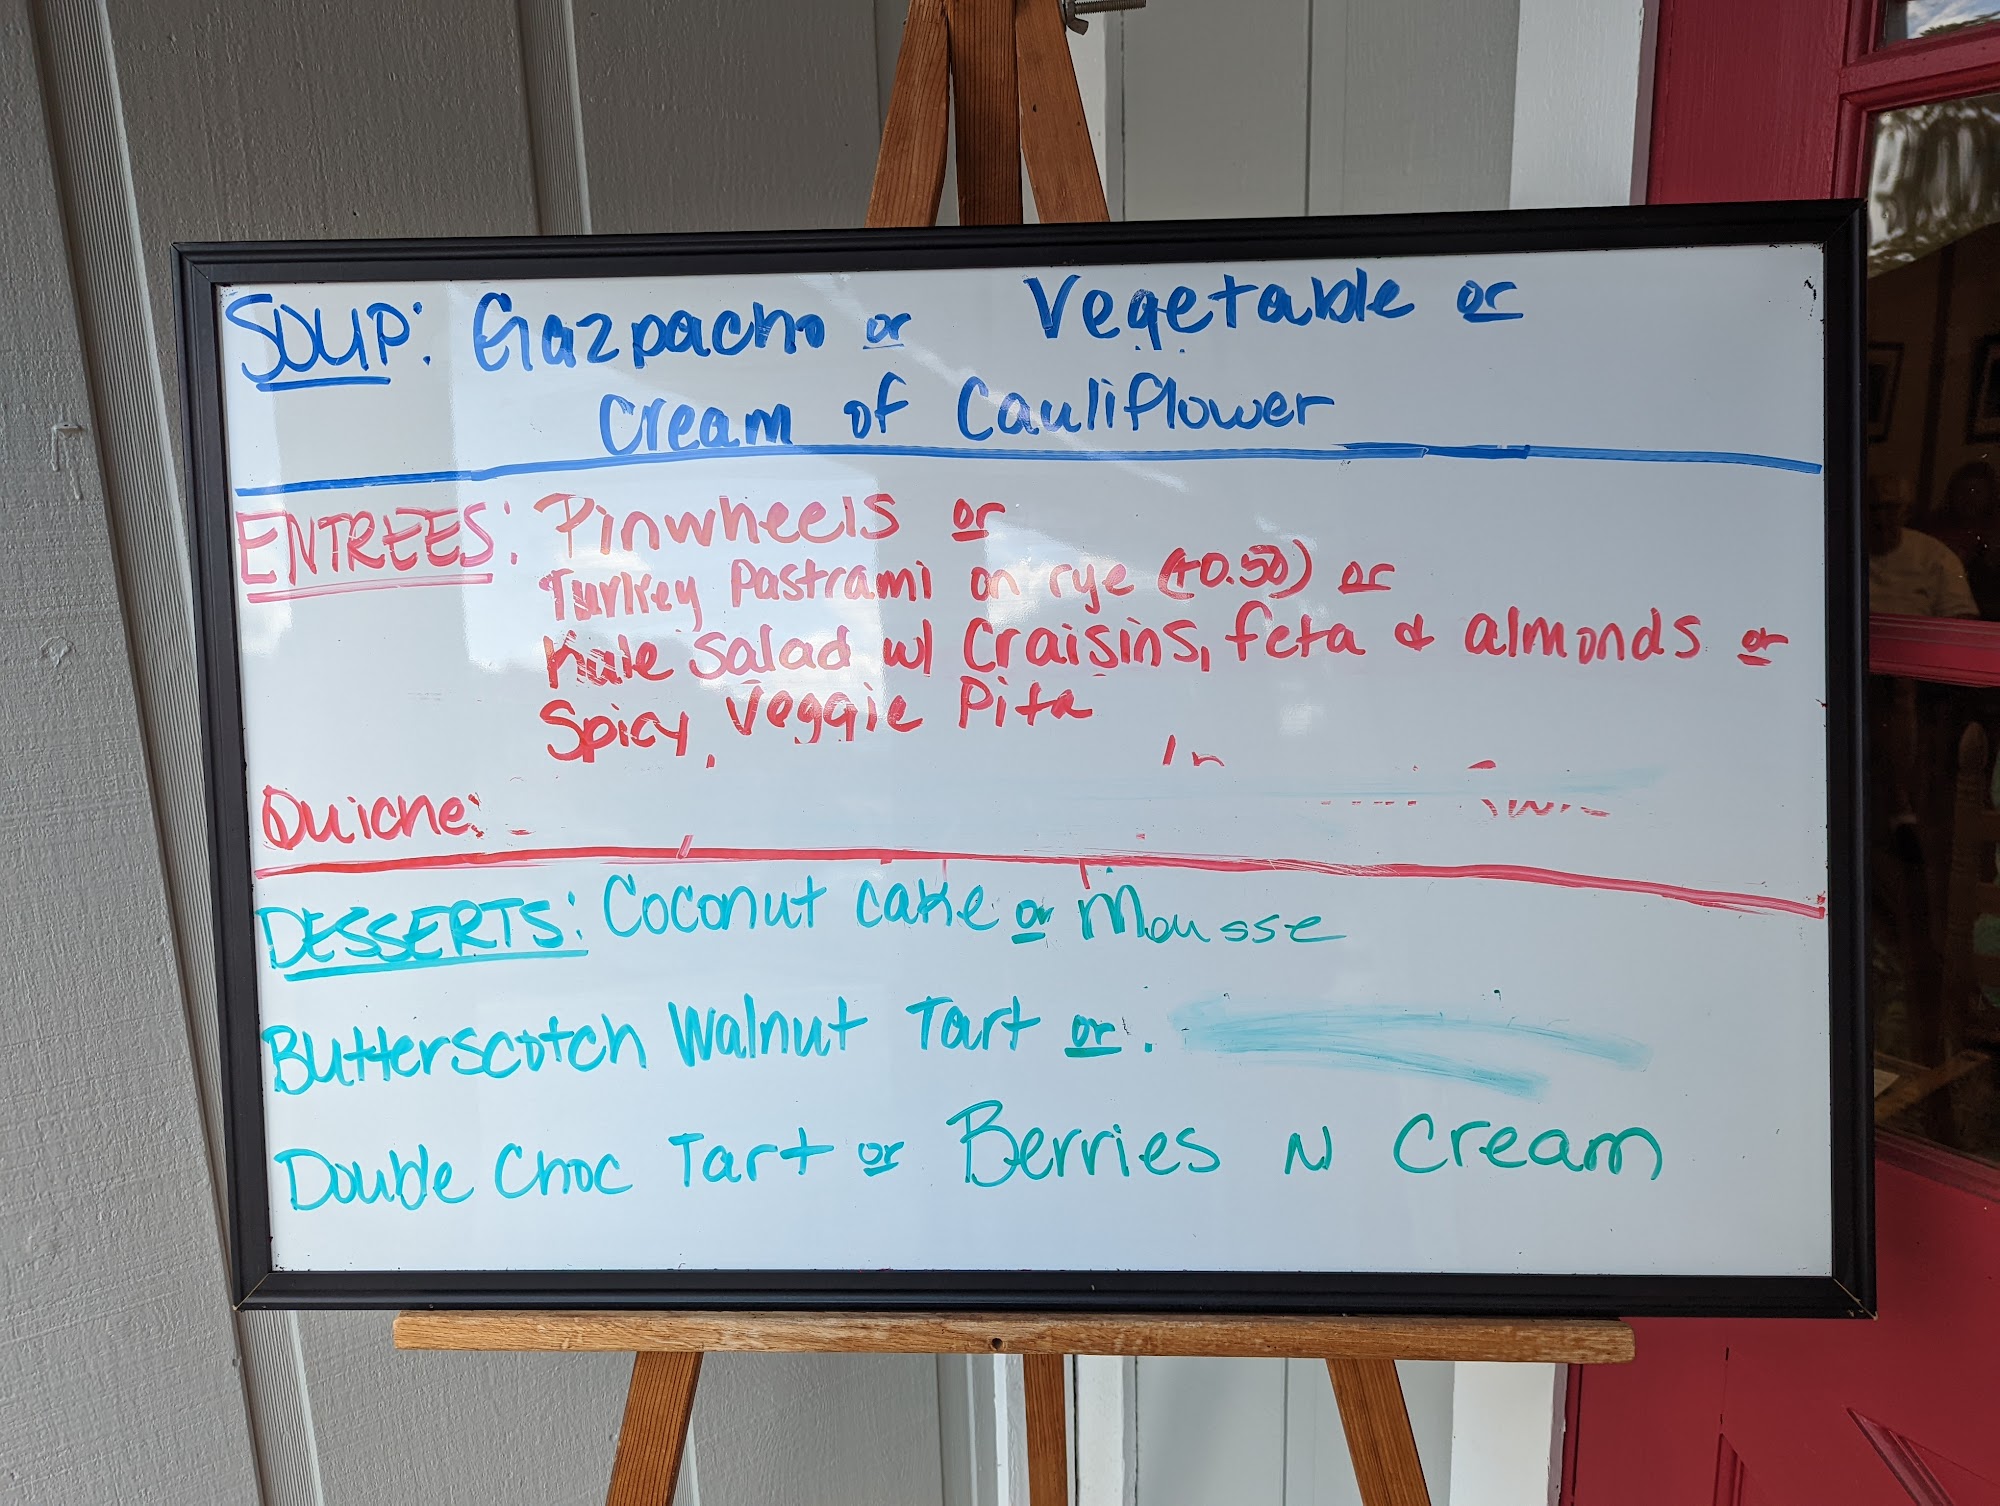 SOUP: Gazpacho or Vegetable or
Cream of Cauliflower
ENTREES: Pinwheels or
Turkey Pastrami on rye (+0.50) or
Kale Salad w/ Craisins, feta & almonds or
Spicy Veggie Pita
Quiche:
DESSERTS: Coconut cake or Mousse
Butterscotch Walnut Tart or
Double Choc Tart or Berries N Cream